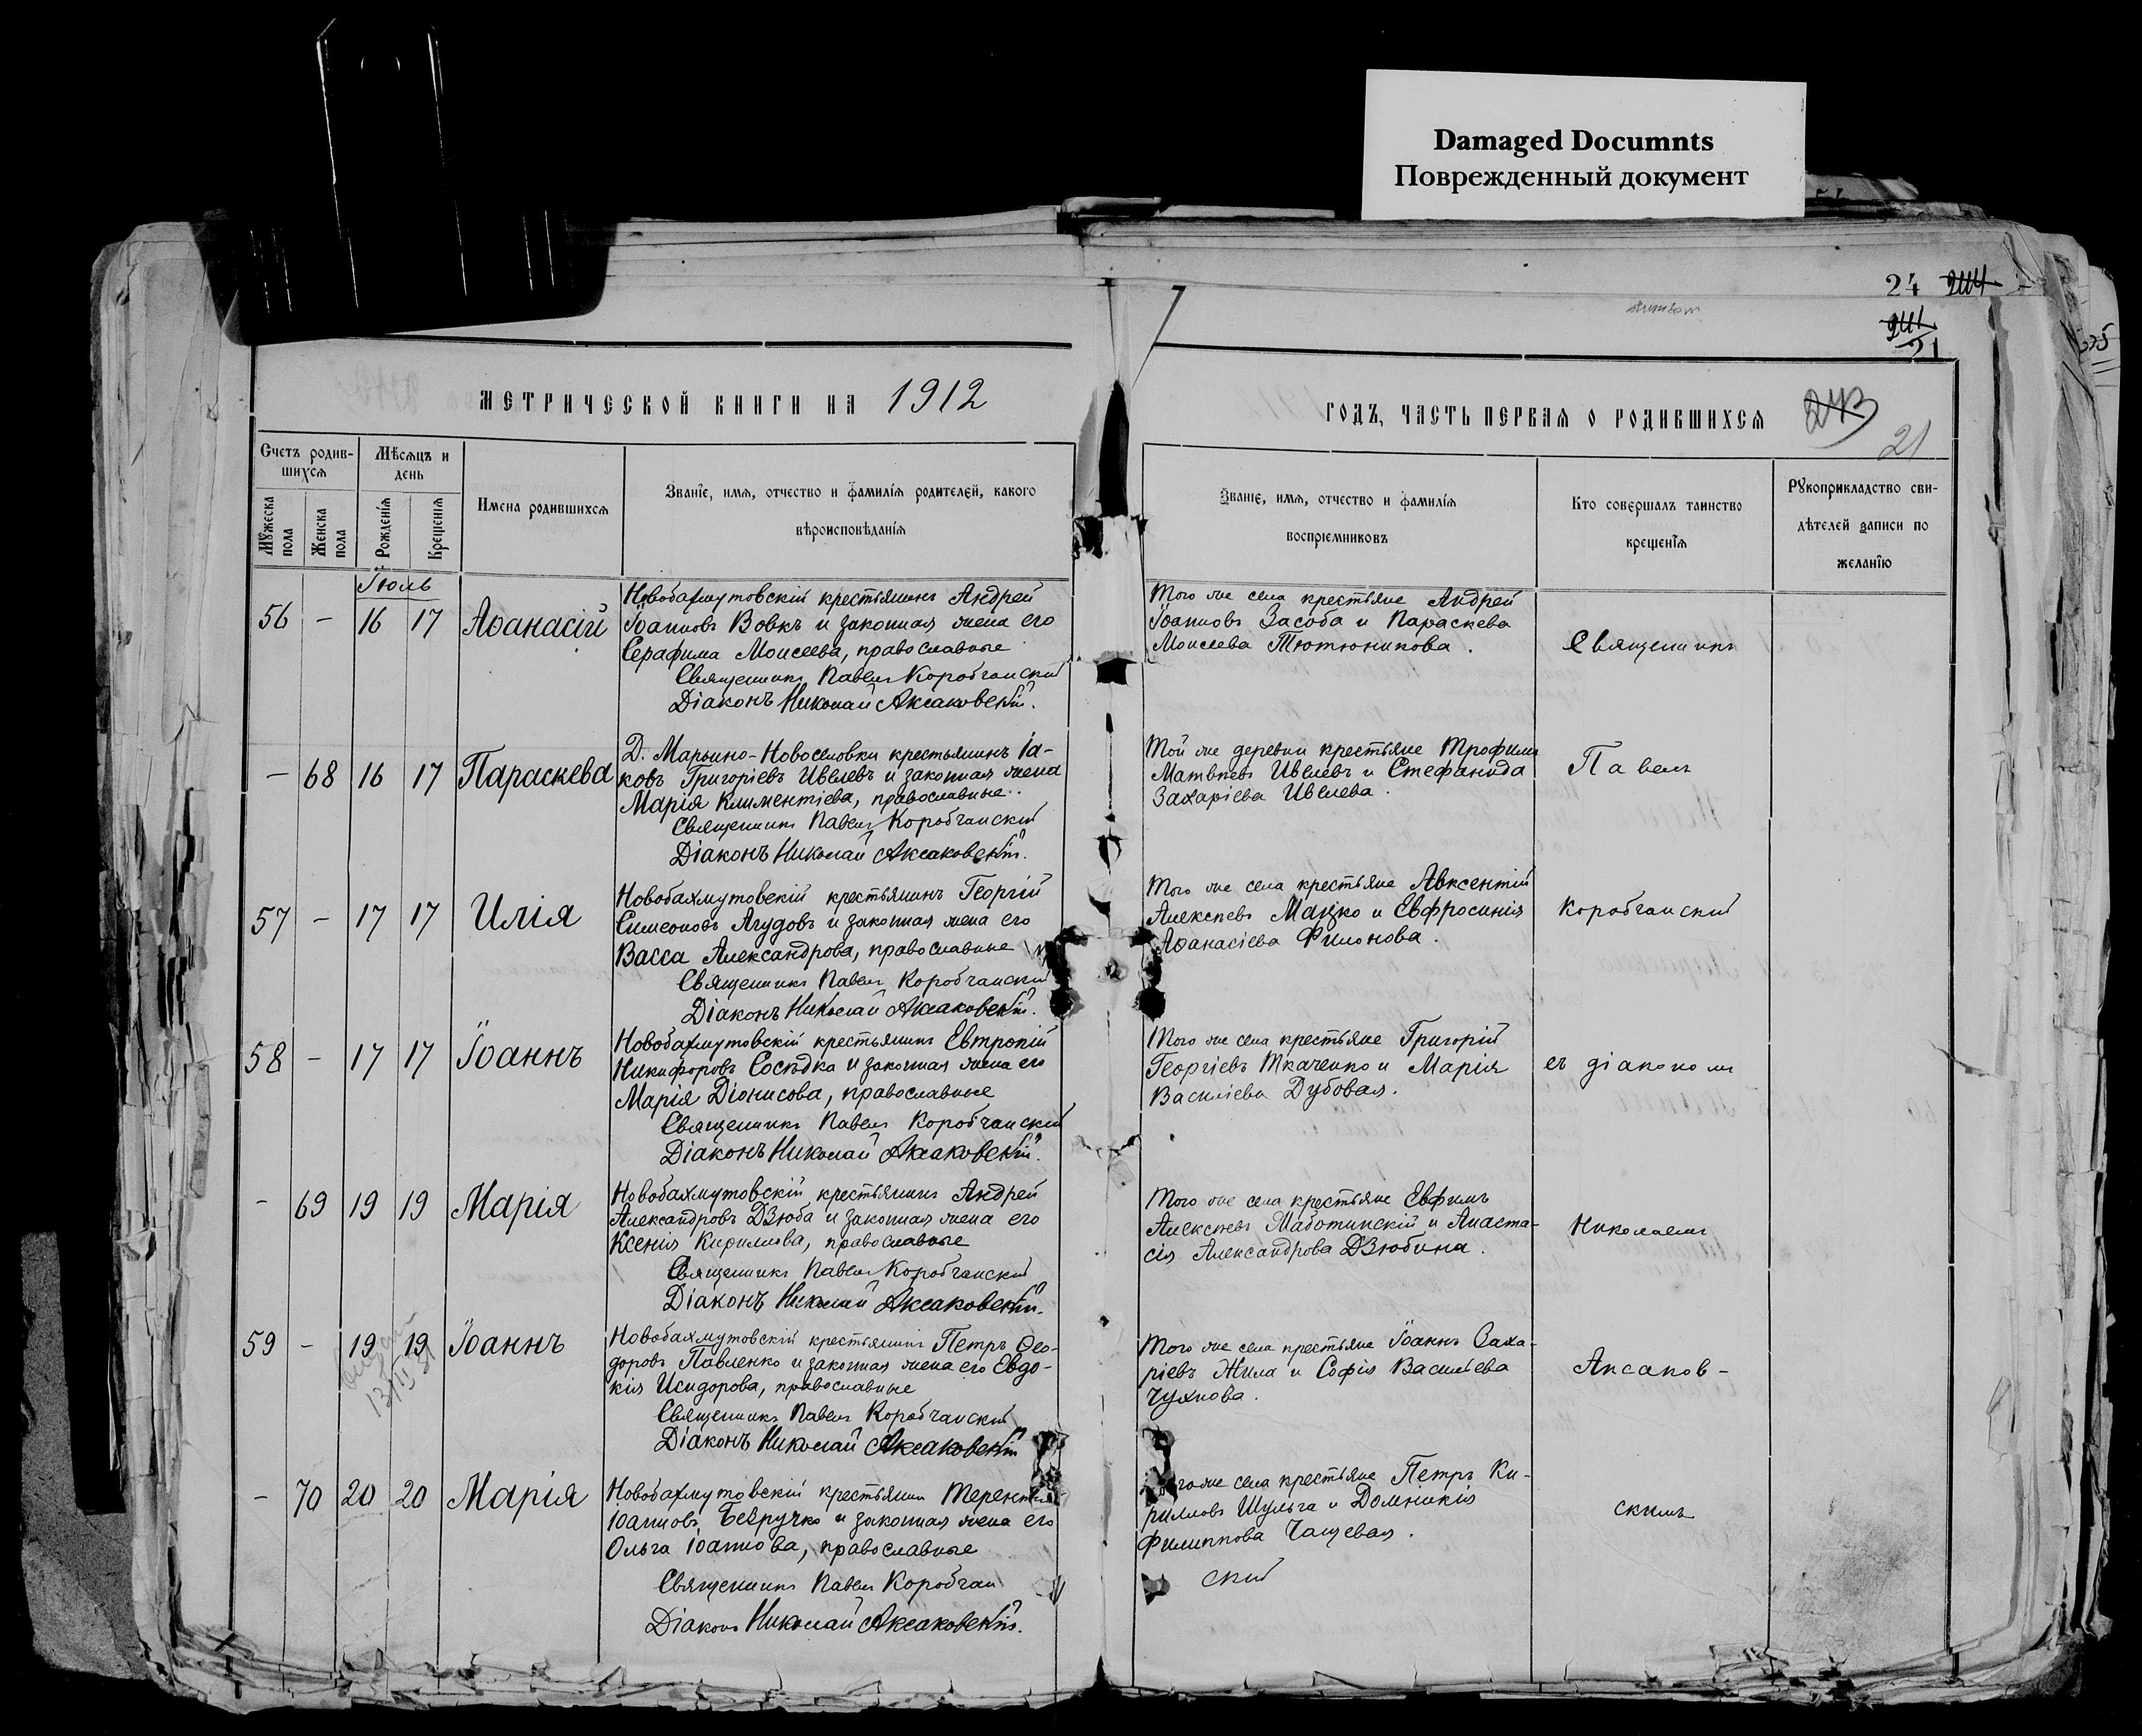 Damaged Documnts
Поврежденный документ
24 244
241
21
МЕТРИЧЕСКОЙ КНИГИ НА 1912
ГОДЪ, ЧАСТЬ ПЕРВАЯ О РОДИВШИХСЯ 243
21
Счетъ родив-
шихся
Мѣсяцъ и
день
Мужеска
пола
Женска
пола
Рожденія
Крещенія
Имена родившихся
Званіе, имя, отчество и фамилія родителей, какого
вѣроисповѣданія
Званіе, имя, отчество и фамилія
воспріемниковъ
Кто совершалъ таинство
крещенія
Рукоприкладство сви-
дѣтелей записи по
желанію
Іюль
56 - 16 17 Аѳанасій
Новобахмутовскій крестьянинъ Андрей
Іоанновъ Вовкъ и законная жена его
Серафима Моисеева, православные
Священникъ Павелъ Коробчанскій
Діаконъ Николай Аксаковскій.
Того же села крестьяне Андрей
Іоанновъ Засоба и Параскева
Моисеева Тютюникова.
Священникъ
- 68 16 17 Параскева
Д. Марьино-Новоселовки крестьянинъ Іа-
ковъ Григоріевъ Ивлевъ и законная жена
Марія Климентіева, православные.
Священникъ Павелъ Коробчанскій
Діаконъ Николай Аксаковскій.
Той же деревни крестьяне Трофимъ
Матвѣевъ Ивлевъ и Стефанида
Захаріева Ивлева.
Павелъ
57 - 17 17 Илія
Новобахмутовскій крестьянинъ Георгій
Симеоновъ Агудовъ и законная жена его
Васса Александрова, православные
Священникъ Павелъ Коробчанскій
Діаконъ Николай Аксаковскій.
Того же села крестьяне Авксентій
Алексѣевъ Мацко и Евфросинія
Аѳанасіева Филонова.
Коробчанскій
58 - 17 17 Іоаннъ
Новобахмутовскій крестьянинъ Евтропій
Никифоровъ Сосѣдко и законная жена его
Марія Діонисова, православные
Священникъ Павелъ Коробчанскій
Діаконъ Николай Аксаковскій.
Того же села крестьяне Григорій
Георгіевъ Ткаченко и Марія
Василіева Дубовая.
съ діакономъ
- 69 19 19 Марія
Новобахмутовскій крестьянинъ Андрей
Александровъ Дзюба и законная жена его
Ксенія Кириллова, православные
Священникъ Павелъ Коробчанскій
Діаконъ Николай Аксаковскій.
Того же села крестьяне Евфимъ
Алексѣевъ Жаботинскій и Анаста-
сія Александрова Дзюбина.
Николаемъ
59 - 19 19 Іоаннъ
Новобахмутовскій крестьянинъ Петръ Ѳео-
доровъ Павленко и законная жена его Евдо-
кія Исидорова, православные
Священникъ Павелъ Коробчанскій
Діаконъ Николай Аксаковскій
Того же села крестьяне Іоаннъ Заха-
ріевъ Жила и Софія Васильева
Чухнова.
Аксаков-
- 70 20 20 Марія
Новобахмутовскій крестьянин Терентій
Іоанновъ Безручко и законная жена его
Ольга Іоаннова, православные
Священникъ Павелъ Коробчан
скій
Діаконъ Николай Аксаковскій.
гоже села крестьяне Петръ Ки-
рилловъ Шульга и Домникія
Филиппова Чащевая.
скимъ